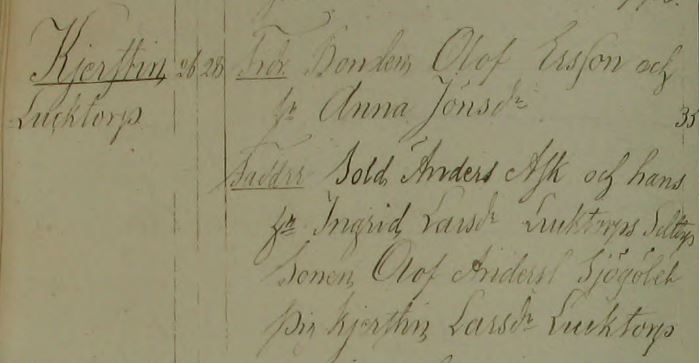 Kjerstin 26 28 Fadr Bonden Olof Ersson och
Lucktorp hr Anna Jönsdr 35
Faddrr Sold Anders Ask och hans
hr Ingrid Larsdr Lucktorps Soltorp
Sonen Olof Andersl Sjögölet
Pig Kjerstin Larsdr Lucktorp